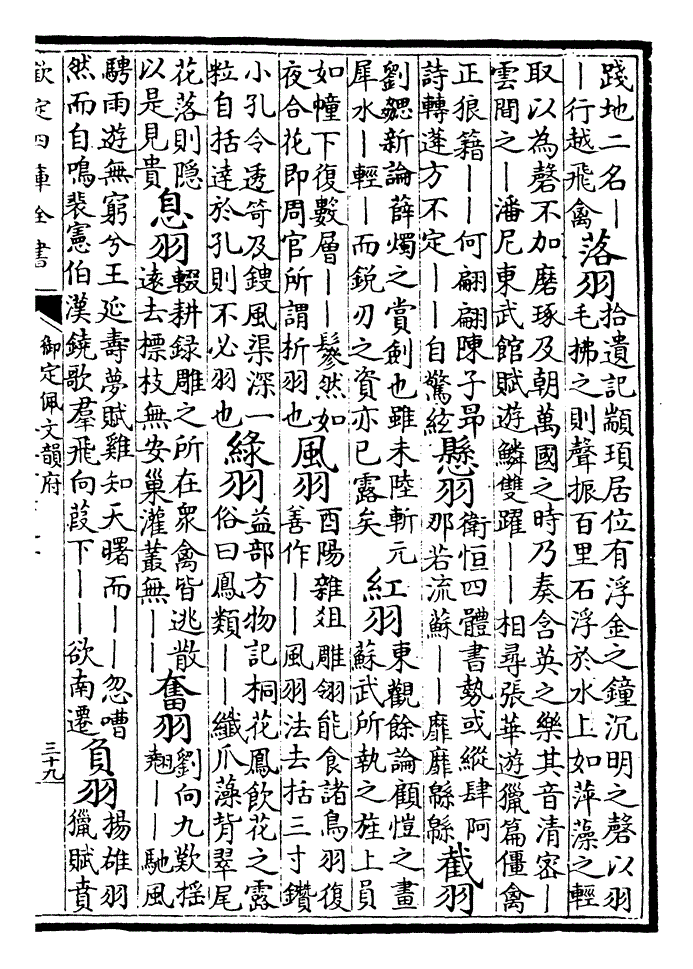 踐地二名｜
｜行越飛禽
落羽
拾遺記顓頊居位有浮金之鐘沉明之磬以羽
毛拂之則聲振百里石浮於水上如萍藻之輕
取以為磬不加磨琢及朝萬國之時乃奏含英之樂其音清密｜
雲間之｜潘尼東武館賦遊鱗雙躍｜｜相尋張華遊獵篇僵禽
正狼籍｜｜何翩翩陳子昻
詩轉蓬方不定｜｜自驚絃
懸羽
衛恒四體書勢或縱肆阿
那若流蘇｜｜靡靡緜緜
截羽
劉勰新論薛燭之賞劍也雖未陸斬元
犀水｜輕｜而銳刃之資亦已露矣
紅羽
東觀餘論顧愷之畫
蘇武所執之旌上員
如幢下復數層｜｜鬖然如
夜合花即周官所謂析羽也
風羽
酉陽雜俎雕翎能食諸鳥羽復
善作｜｜風羽法去括三寸鑽
小孔令透笴及鎪風渠深一
粒自括達於孔則不必羽也
綠羽
益部方物記桐花鳳飲花之露
俗曰鳳類｜｜纖爪藻背翠尾
花落則隱
以是見貴
息羽
輟耕録雕之所在衆禽皆逃散
遠去標枝無安巢灌叢無｜｜
奮羽
劉向九歎揺
翹｜｜馳風
騁雨遊無窮兮王延壽夢賦雞知天曙而｜｜忽嘈
然而自鳴裴憲伯漢鐃歌羣飛向葭下｜｜｜欲南遷
負羽
揚雄羽
獵賦賁
欽定四庫全書
御定佩文韻府
三十九